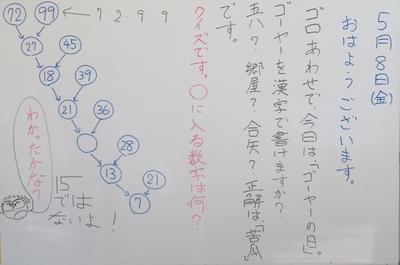 5月8日(金)
おはようございます。
ゴロあわせで、今日は、「ゴーヤーの日」。
ゴーヤーを漢字で書けますか？
五八？郷屋？合矢？正解は「苦瓜」
です。
クイズです。○に入る数字は何？
72 99 ← 7 2 9 9
27 45
18 39
21 36
28
13 21
7
わかったかな？
15では
ないよ！